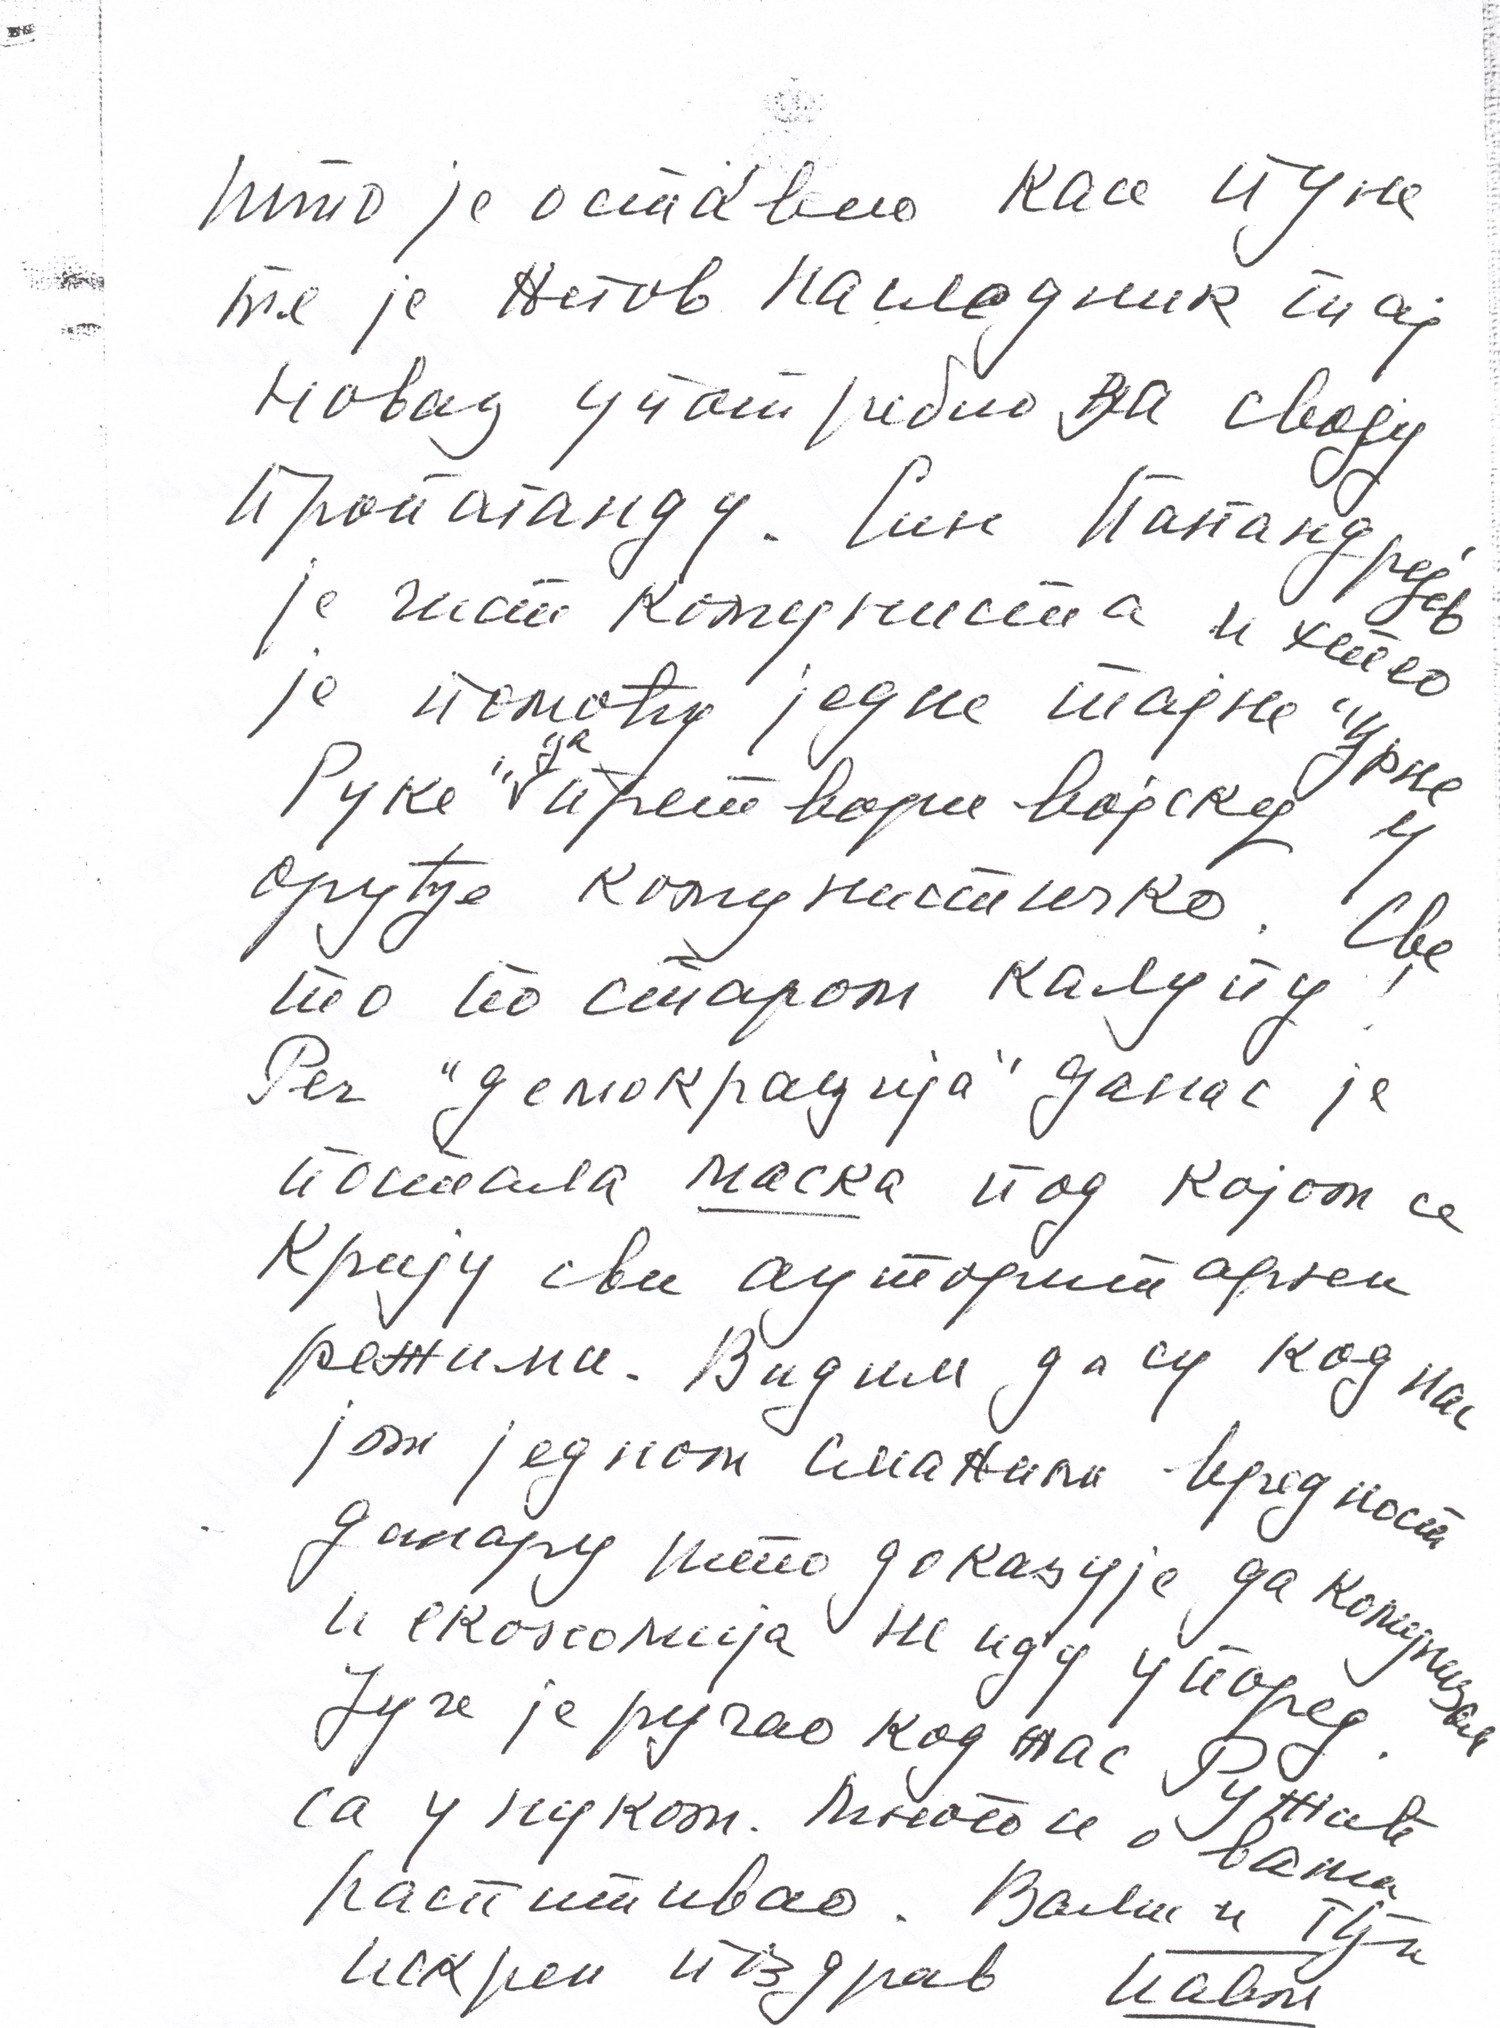 што је оставио касе пуне
те је његов наследник тај
новац употребио за своју
пропаганду. Син Папандрејев
је чист комуниста и хтео
је помоћу једне тајне "Црне
Руке" да претвори војску у
оруђе комунистичко. Све
то по старом калупу!
Реч "демокрација" данас је
постала маска под којом се
Крију сви ауторитарни
режими. Видим да су код нас
још једном смањили вредност
динару што доказује да комунизам
и економија не иду упоред.
Јуче је ручао код нас Ружић
са унуком. Много и о вама
распитивао. Вама и
искрен поздрав Павле